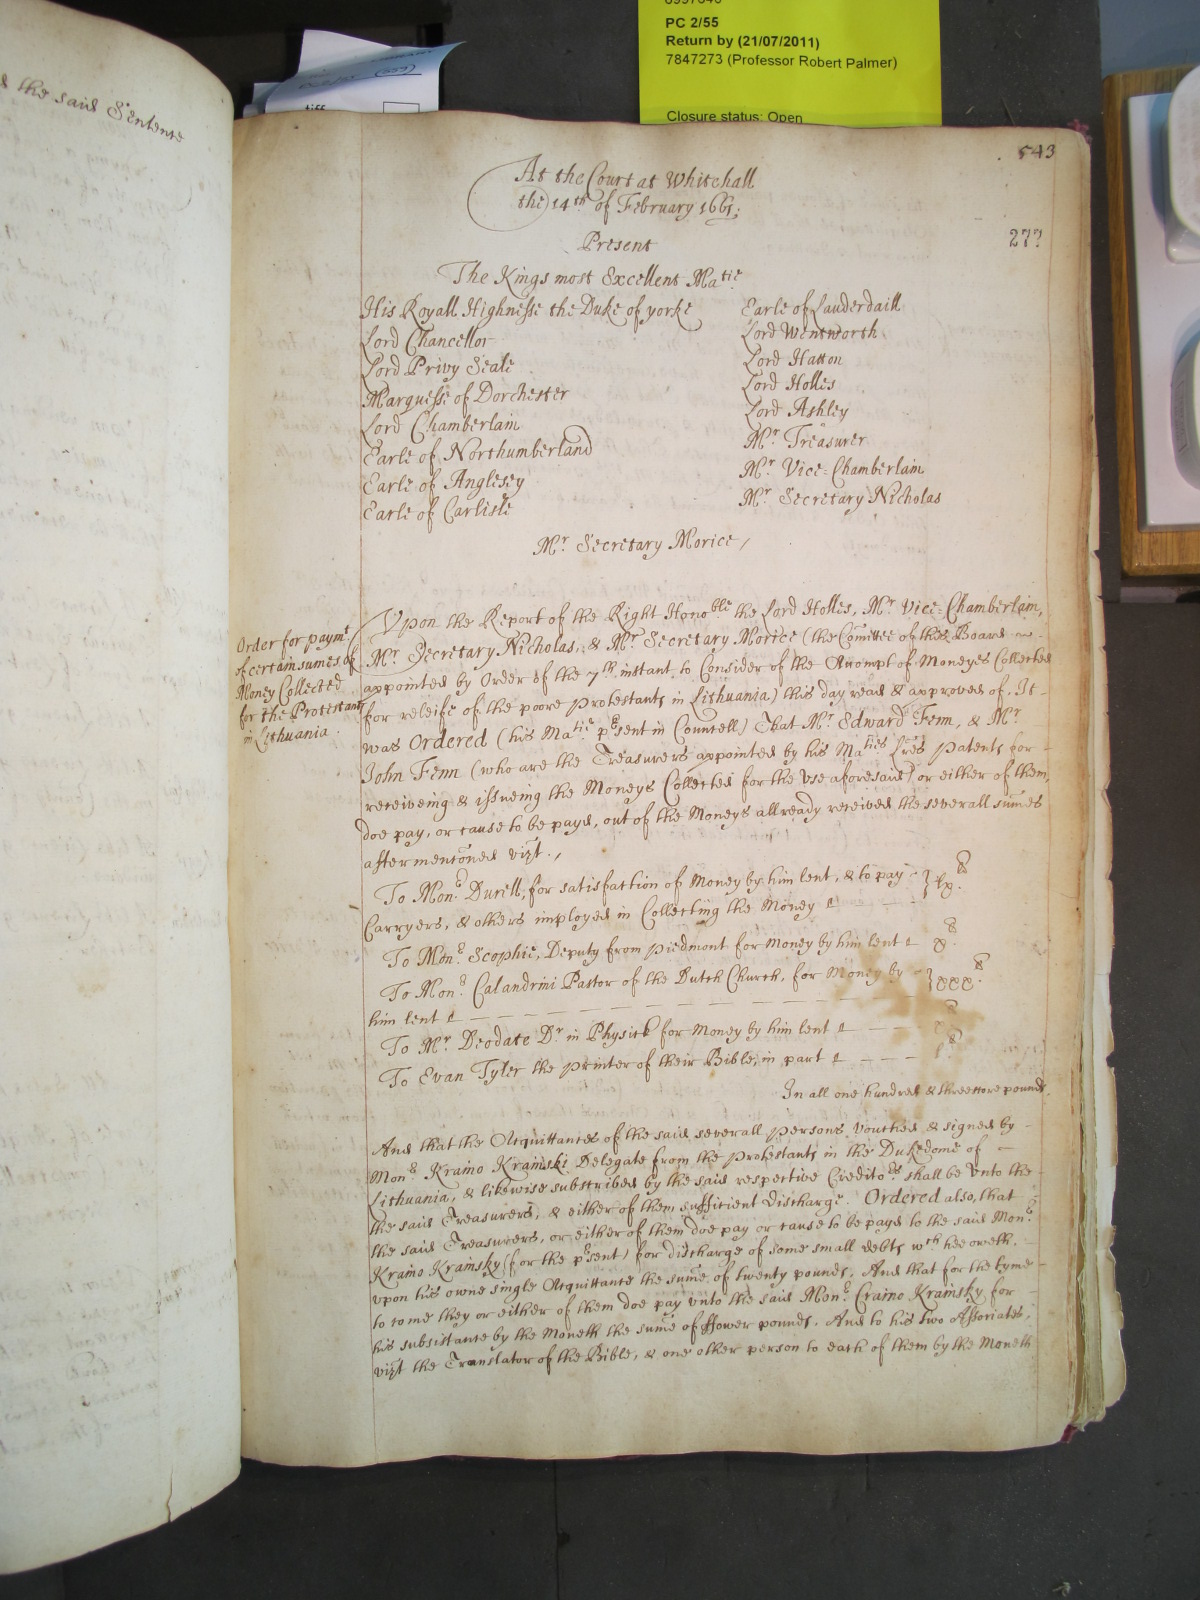 6997648
PC 2/55
Return by (21/07/2011)
7847273 (Professor Robert Palmer)
Closure status: Open
the said Sentence
543
277
At the Court at Whitehall
the 14th of February 1661;
Present
The Kings most Excellent Matie
His Royall Highnesse the Duke of yorke
Lord Chancellor
Lord Privy Seale
Marquesse of Dorchester
Lord Chamberlain
Earle of Northumberland
Earle of Anglesey
Earle of Carlisle
Earle of Lauderdaill
Lord Wentworth
Lord Hatton
Lord Holles
Lord Ashley
Mr Treasurer
Mr Vice-Chamberlain
Mr Secretary Nicholas
Mr Secretary Morice /
Order for paymt
of certain sumes of
Money Collected
for the Protestants
in Lithuania.
Upon the Report of the Right Honoble the Lord Holles, Mr Vice-Chamberlain,
Mr Secretary Nicholas, & Mr Secretary Morice (the Comittee of this Board
appointed by Order of the 7th instant, to Consider of the Accompt of Moneys Collected
for releife of the poore Protestants in Lithuania) this day read & approved of, It
was Ordered (his Matie psent in Councell) That Mr Edward Fenn, & Mr
John Fenn (who are the Treasurers appointed by his Maties Lres Patents for
receiveing & issueing the Moneys Collected for the Use aforesaid) or either of them,
doe pay, or cause to be payd, out of the Moneys allready received the severall sumes
aftermentoned vizt. /
To Monr Durell, for satisfaction of Money by him lent, & to pay
Carryers, & others imployed in Collecting the Money lx.
To Monr Scophie, Deputy from Piedmont for Money by him lent x
To Monr Calandrini Pastor of the Dutch Church, for Money by
him lent xxx.
To Mr Deodate Dr in Physick for Money by him lent
To Evan Tyler the Printer of their Bible, in part
In all one hundred & threescore pounds.
And that the Acquittances of the said severall persons, vouched & signed by
Monr Kraino Krainski Delegate from the Protestants in the Dukedome of
Lithuania, & likewise subscribed by the said respective Creditors shall be unto the
the said Treasurers, & either of them sufficient discharge. Ordered also, that
the said Treasurers, or either of them doe pay or cause to be payd to the said Monr
Kraino Kramsky (for the psent) for discharge of some small debts wch hee oweth.
upon his owne single Acquittance the sume of twenty pounds. And that for the tyme
to come they or either of them doe pay unto the said Monr Craino Kramsky for
his subsistance by the Moneth the sume of ffower pounds. And to his two Associates,
vizt the Translator of the Bible, & one other person to each of them by the Moneth